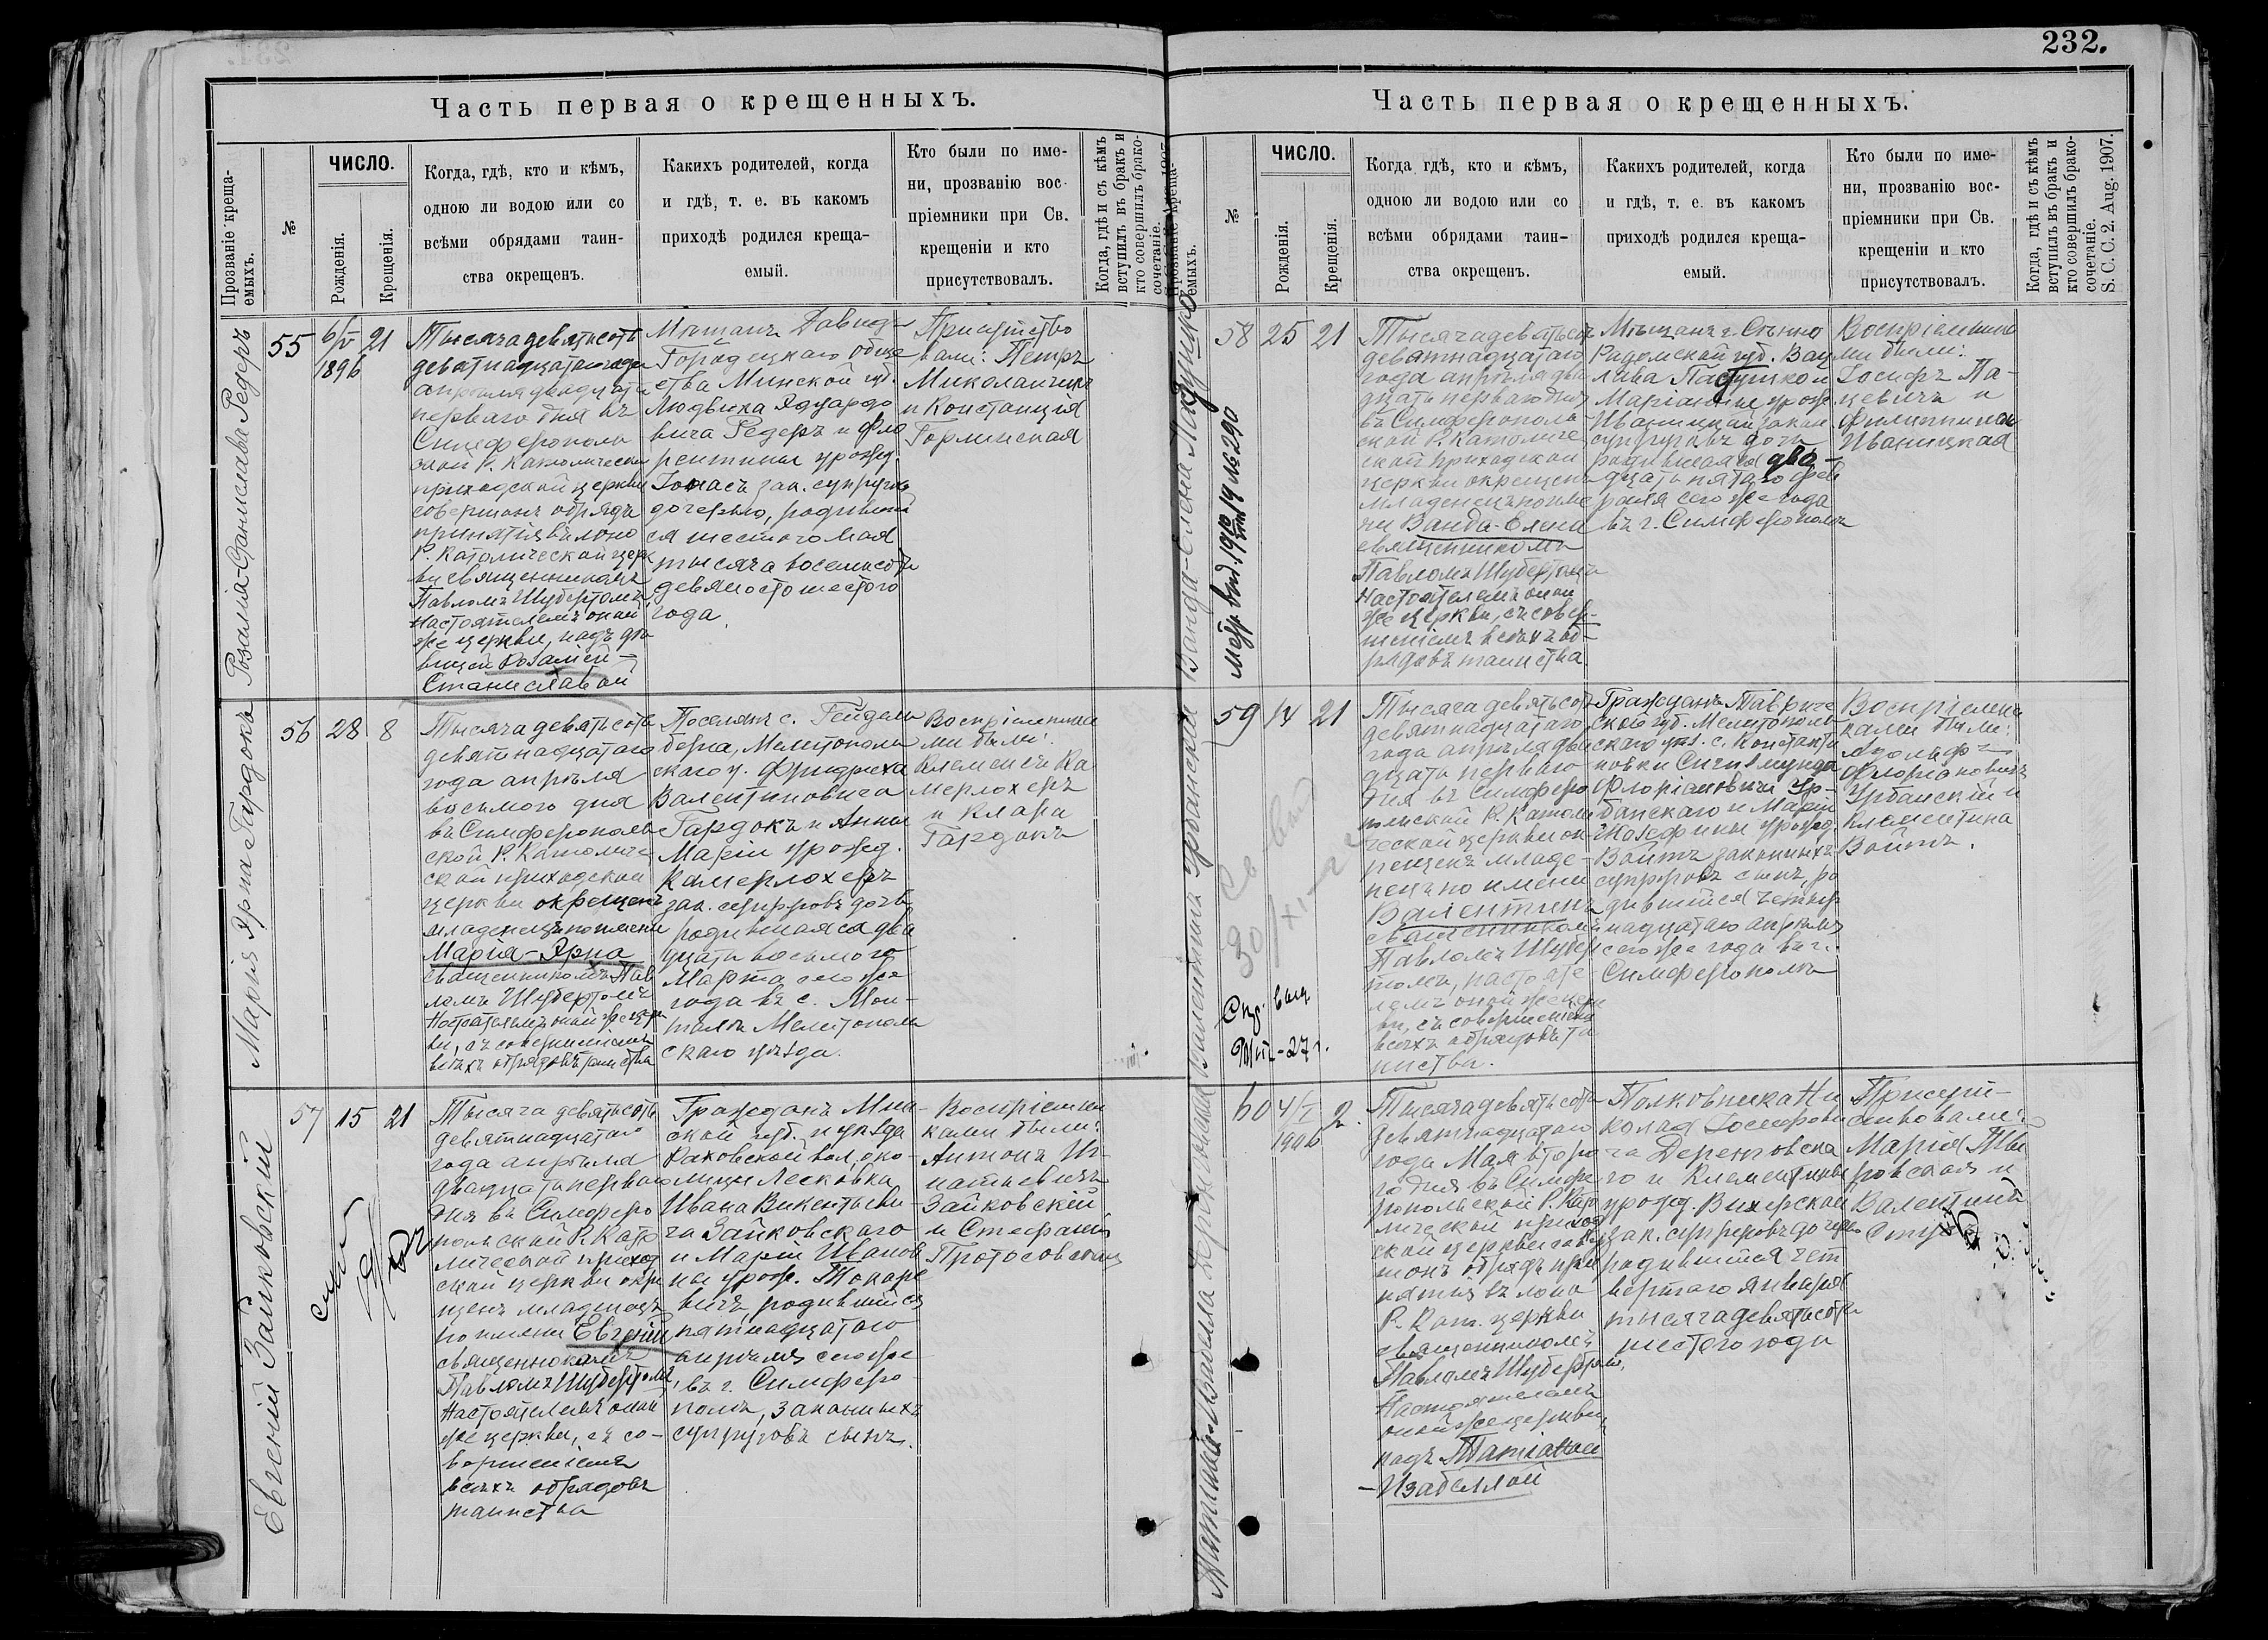 232.
Часть первая о крещенныхъ.
Прозваніе креща-
емыхъ.
№
ЧИСЛО.
Рожденія.
Крещенія.
Когда, гдѣ, кто и кѣмъ,
одною ли водою или со
всѣми обрядами таин-
ства окрещенъ.
Какихъ родителей, когда
и гдѣ, т. е. въ какомъ
приходѣ родился креща-
емый.
Кто были по име-
ни, прозванію вос-
пріемники при Св.
крещеніи и кто
присутствовалъ.
Когда, гдѣ и съ кѣмъ
вступилъ въ бракъ и
кто совершилъ брако-
сочетаніе.
Розалія-Станислава Редеръ
55
6/V
1896
21
Тысяча девятьсотъ
девятнадцатаго года
апрѣля двадцать
перваго дня въ
Симферополь
ской Р. Католической
приходской церкви
совершонъ обрядъ
принятія въ лоно
Р. Католической церк
ви священникомъ
Павломъ Шубертомъ
Настоятелемъ оной
же церкви, надъ дѣ
вицей Розаліей-
Станиславой
Мѣщанъ Давидъ
Городецкаго обще
ства Минской губ.
Людвика Эдуардо
вича Редеръ и Фло
рентины урожд.
зак. супруговъ
дочерью, родившей
ся шестого Мая
тысяча восемьсотъ
девяносто шестого
года.
Присутство
вали: Петръ
Миколайчикъ
и Констанція
Горлинская
Марія Ярна Гардокъ
56
28
8
Тысяча девятьсотъ
девятнадцатаго
года апрѣля
восьмого дня
въ Симферополь
ской Р. Католиче
ской приходской
церкви окрещенъ
младенецъ по имени
Марія-Ярна
священникомъ Пав
ломъ Шубертомъ
Настоятелемъ оной же церк
ви, съ совершеніемъ
всѣхъ обрядовъ таинства
Поселянъ с. Гейдель
берга, Мелитополь
скаго у. Фридриха
Валентиновича
Гардокъ и Анны
Маріи урожд.
Камерлохеръ
зак. супруговъ дочь,
родившаяся два
дцать восьмого
Марта сего же
года въ с. Мон-
таль Мелитополь
скаго уѣзда.
Воспріемника
ми были:
Клеменсъ Ка
мерлохеръ
и Клара
Гардокъ
Евгеній Зайковскій
57
15
21
Тысяча девятьсотъ
девятнадцатаго
года апрѣля
двадцать перваго
дня въ Симферо
польской Р. Като
лической приход
ской церкви окре
щенъ младенецъ
по имени Евгеній
священникомъ
Павломъ Шубертомъ,
Настоятелемъ оной
же церкви, съ со-
вершеніемъ
всѣхъ обрядовъ
таинства
Гражданъ Мин-
ской губ. и уѣзда
Раковской вол., око-
лицы Лесковка
Ивана Викентьеви
ча Зайковскаго
и Маріи Иванов
ны урожд. Токаре
вичъ, родившійся
пятнадцатаго
апрѣля сего же
въ г. Симферо-
полѣ, законныхъ
супруговъ сынъ.
Воспріемни
ками были:
Антонъ Иг-
натьевичъ
Зайковскій
и Стефанія
Протосовская
Часть первая о крещенныхъ.
Прозваніе креща-
емыхъ.
№
ЧИСЛО.
Рожденія.
Крещенія.
Когда гдѣ, кто и кѣмъ,
одною ли водою или со
всѣми обрядами таин-
ства окрещенъ.
Какихъ родителей, когда
и гдѣ, т. е. въ какомъ
приходѣ родился креща-
емый.
Кто были по име-
ни, прозванію вос-
пріемники при Св.
крещеніи и кто
присутствовалъ.
Когда, гдѣ и съ кѣмъ
вступилъ въ бракъ и
кто совершилъ брако-
сочетаніе.
S. C. C. 2. Aug. 1907.
Ванда-Елена
58
25
21
Тысяча девятьсотъ
девятнадцатаго
года апрѣля два
дцать перваго дня
въ Симферополь
ской Р. Католиче
ской приходской
церкви окрещенъ
младенецъ по име
ни Ванда-Елена
священникомъ
Павломъ Шубертомъ
Настоятелемъ оной
же церкви, съ совер-
шеніемъ всѣхъ об-
рядовъ таинства.
Мѣщанъ г. Стѣнно
Радомской губ. Вац
лава Пастушко и
Маріанны урожд.
Иваницкой закон
супруговъ дочь
родившаяся два-
дцать пятаго фев
раля сего же года
въ г. Симферополѣ
Воспріемника
ми были:
Іосифъ Па-
цевичъ и
Филиппина
Иваницкая
Валентинъ Урбанскій
59
14
21
Тысяча девятьсотъ
девятнадцатаго
года апрѣля два
дцать перваго
дня въ Симферо
польской Р. Католи
ческой церкви ок-
рещенъ младе-
нецъ по имени
Валентинъ
священникомъ
Павломъ Шубер
томъ, настояте
лемъ оной же церк
ви, съ совершеніемъ
всѣхъ обрядовъ та
инства.
Гражданъ Тавриче
ской губ. Мелитополь
скаго уѣз. с. Константи
новки Сигизмунда
Флоріановича Ур-
банскаго и Маріи
Жозефины урожд.
Войтъ законныхъ
супруговъ сынъ, ро
дившійся четыр
надцатаго апрѣля
сего же года въ г.
Симферополѣ
Воспріемни
ками были:
Адольфъ
Флоріановичъ
Урбанскій и
Клементина
Войтъ.
60
4/I
1906
2.
Тысяча девятьсотъ
девятнадцатаго
года Мая второ
го дня въ Симфе
ропольской Р. Като
лической приход
ской церкви совер
шонъ обрядъ при
нятія въ лоно
Р. Кат. церкви
священникомъ
Павломъ Шубертомъ,
Настоятелемъ
оной же церкви,
надъ
-Изабеллой
Полковника Ни
колая Іосифови
ча Деренговска
го и Клементины
урожд. Вихерской
зак. супруговъ дочерью
родившейся чет
вертаго января
тысяча девятьсотъ
шестого года
Присут-
ствовали:
Марія
и
Валентинъ